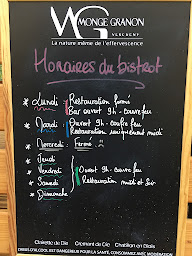 MONGE GRANON
VERCHENY
La nature même de l'effervescence
Horaires du bistrot
* Lundi - Restauration fermé
Bar ouvert 9h - couvre feu
* Mardi - Ouvert 9h - couvre feu
Restauration uniquement midi
* Mercredi : Fermé :(
* Jeudi
* Vendredi Ouvert 9h - couvre feu
* Samedi Restauration midi et soir
* Dimanche
Clairette de Die Crémant de Die Châtillon en Diois
L'ABUS D'ALCOOL EST DANGEREUX POUR LA SANTÉ, CONSOMMEZ AVEC MODÉRATION